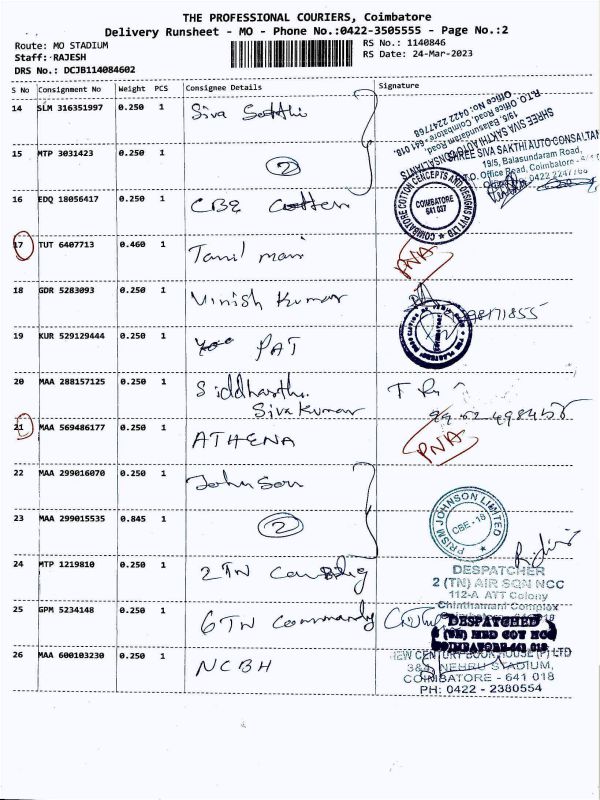 THE PROFESSIONAL COURIERS, Coimbatore
Delivery Runsheet - MO - Phone No.:0422-3505555 - Page No.:2
Route: MO STADIUM
Staff: RAJESH
DRS No.: DCJB114084602
RS No.: 1140846
RS Date: 24-Mar-2023
S No Consignment No Weight PCS Consignee Details Signature
14 SLM 316351997 0.250 1 Siva Sakthi
SHREE SIVA SAKTHI AUTO CONSULTANTS
19/5, Balasundaram Road,
R.T.O. Office Road, Coimbatore - 641 018.
Office No. 0422 2247768
15 MTP 3031423 0.250 1 2
SHREE SIVA SAKTHI AUTO CONSULTAN
19/5, Balasundaram Road,
T.O. Office Road, Coimbatore
0422 2247768
16 EDQ 18056417 0.250 1 CBE Cotten
COIMBATORE COTTON CENCEPTS AND DESIGNS PVT LTD
COIMBATORE
641 037
17 TUT 6407713 0.460 1 Tamil mani PNA
18 GDR 5283093 0.250 1 Vinish Kumar
19 KUR 529129444 0.250 1 PAT
20 MAA 288157125 0.250 1 Siddharth.
Sivakumar
21 MAA 569486177 0.250 1 ATHENA PNA
22 MAA 299016070 0.250 1 Johnson
23 MAA 299015535 0.845 1 2
PRISM JOHNSON LIMITED
CBE - 18
24 MTP 1219810 0.250 1 2 TN
DESPATCHER
2 (TN) AIR SQN NCC
112-A ATT Colony
Chinthamani Complex
25 GPM 5234148 0.250 1 6 TN Commandg
DESPATCHED
26 MAA 600103230 0.250 1 NCBH
NEW CENTURY BOOK HOUSE (P) LTD
NEHRU STADIUM,
COIMBATORE - 641 018
PH: 0422 - 2380554